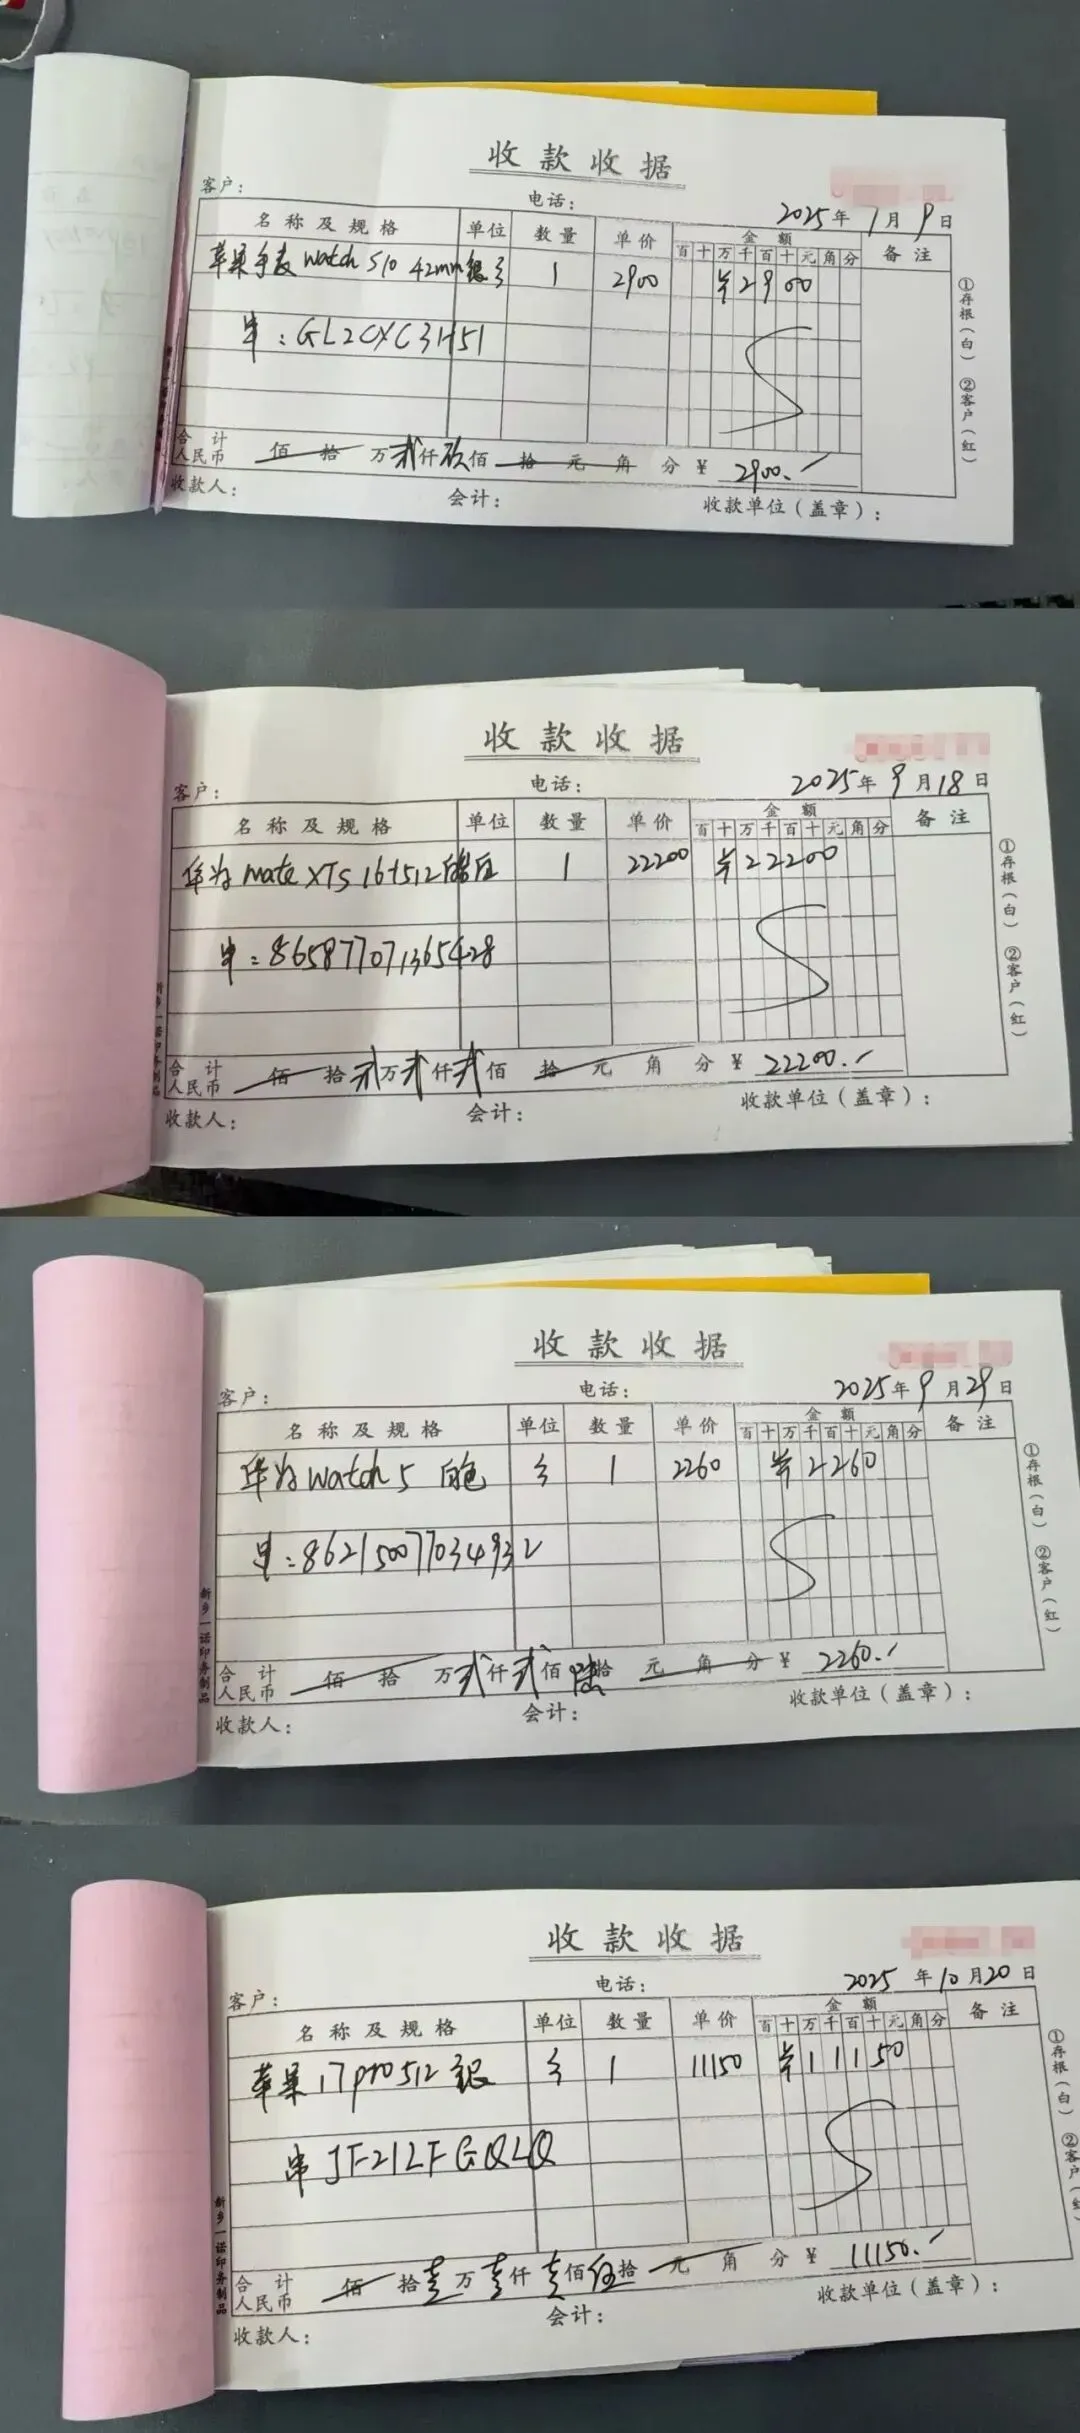 收款收据
客户： 电话： 2025年1月9日
名称及规格 单位 数量 单价 金额 备注
百十万千百十元角分
苹果手表 watch S10 42mm 银 个 1 2900 ¥2900
串：GL2CXC3H51
合计人民币 佰拾万贰仟玖佰拾元角分 ¥ 2900.
收款人： 会计： 收款单位（盖章）：
①存根（白） ②客户（红）
收款收据
客户： 电话： 2025年9月18日
名称及规格 单位 数量 单价 金额 备注
百十万千百十元角分
华为 mate XTS 16+512 1 22200 ¥22200
串：865877071365428
合计人民币 佰拾贰万贰仟贰佰拾元角分 ¥ 22200.
收款人： 会计： 收款单位（盖章）：
①存根（白） ②客户（红）
新乡一诺印务制品
收款收据
客户： 电话： 2025年9月29日
名称及规格 单位 数量 单价 金额 备注
百十万千百十元角分
华为 watch 5 白色 个 1 2260 ¥2260
串：862150077034932
合计人民币 佰拾万贰仟贰佰陆拾元角分 ¥ 2260.
收款人： 会计： 收款单位（盖章）：
①存根（白） ②客户（红）
新乡一诺印务制品
收款收据
客户： 电话： 2025年10月20日
名称及规格 单位 数量 单价 金额 备注
百十万千百十元角分
苹果 17 pro 512 银 个 1 11150 ¥11150
串 JF21LFGQLQ
合计人民币 佰拾壹万壹仟壹佰伍拾元角分 ¥ 11150.
收款人： 会计： 收款单位（盖章）：
①存根（白） ②客户（红）
新乡一诺印务制品